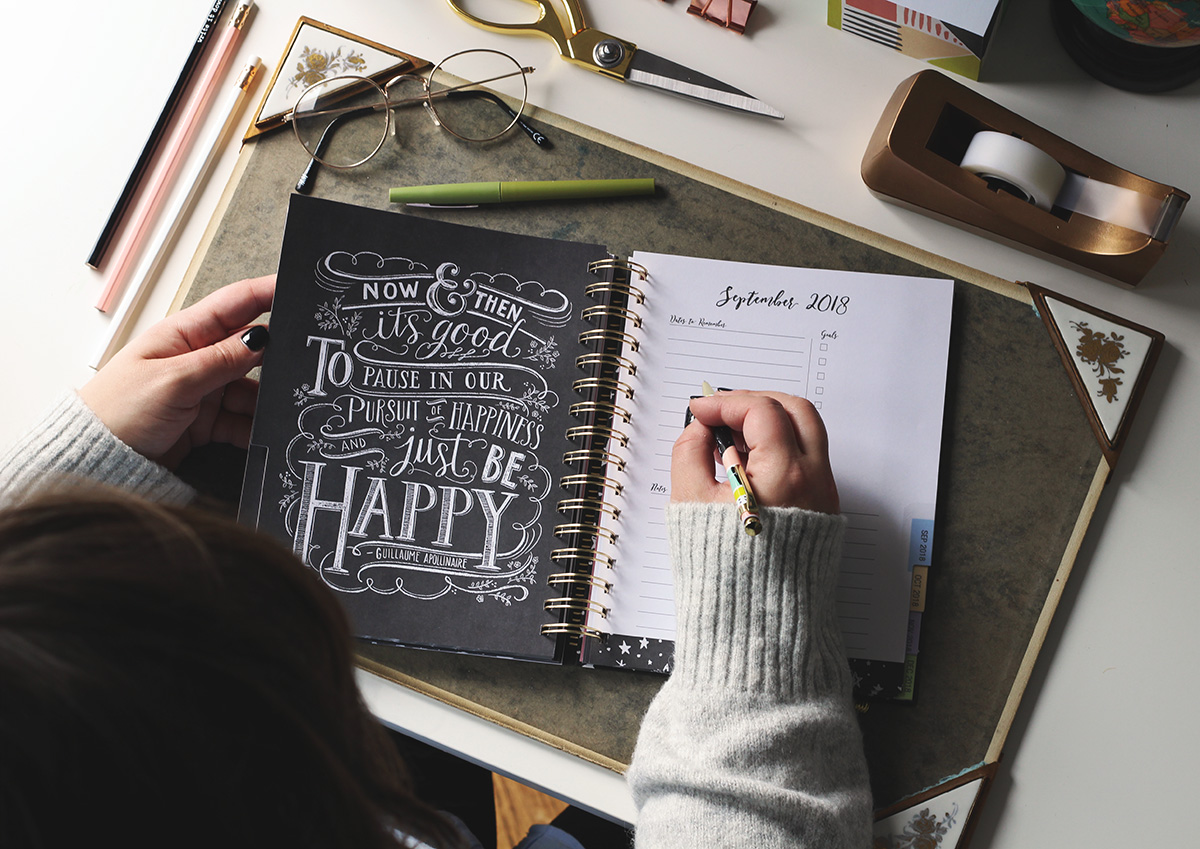 write it down
CE
NOW & THEN
it's good
TO PAUSE IN OUR
PURSUIT OF HAPPINESS
AND just BE
HAPPY
- GUILLAUME APOLLINAIRE
September 2018
Dates to Remember
Goals
Notes
SEP 2018
OCT 2018